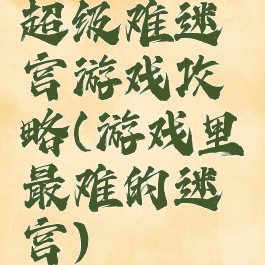 超级难迷
宫游戏攻
略(游戏里
最难的迷
宫)